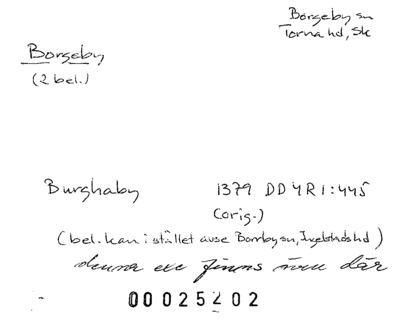 Borgeby sn
Torna hd, Sk
Borgeby
(2 bel.)
Burghaby 1379 DD4R1:445
(orig.)
(bel. kan i stället avse Borrby sn, Ingelstads hd)
denna ex finns även där
00025202